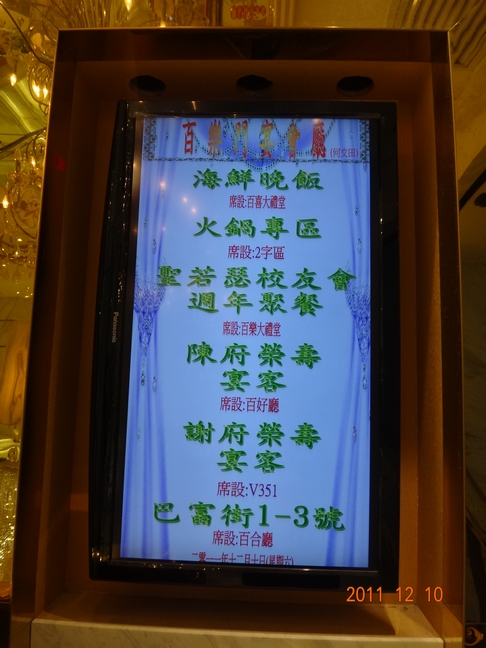 百樂門宴會廳(何文田)
海鮮晚飯
席設:百喜大禮堂
火鍋專區
席設:2字區
聖若瑟校友會
週年聚餐
席設:百樂大禮堂
陳府榮壽
宴客
席設:百好廳
謝府榮壽
宴客
席設:V351
巴富街1-3號
席設:百合廳
二零一一年十二月十日(星期六)
Panasonic
2011 12 10